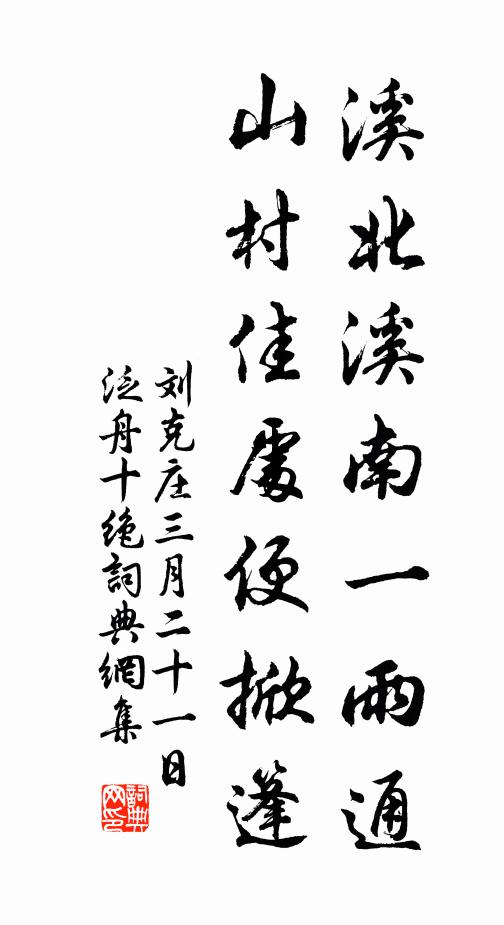 溪北溪南一雨通
山村佳處便掀篷
刘克庄三月二十一日
泛舟十绝詞典網集
詞典网印